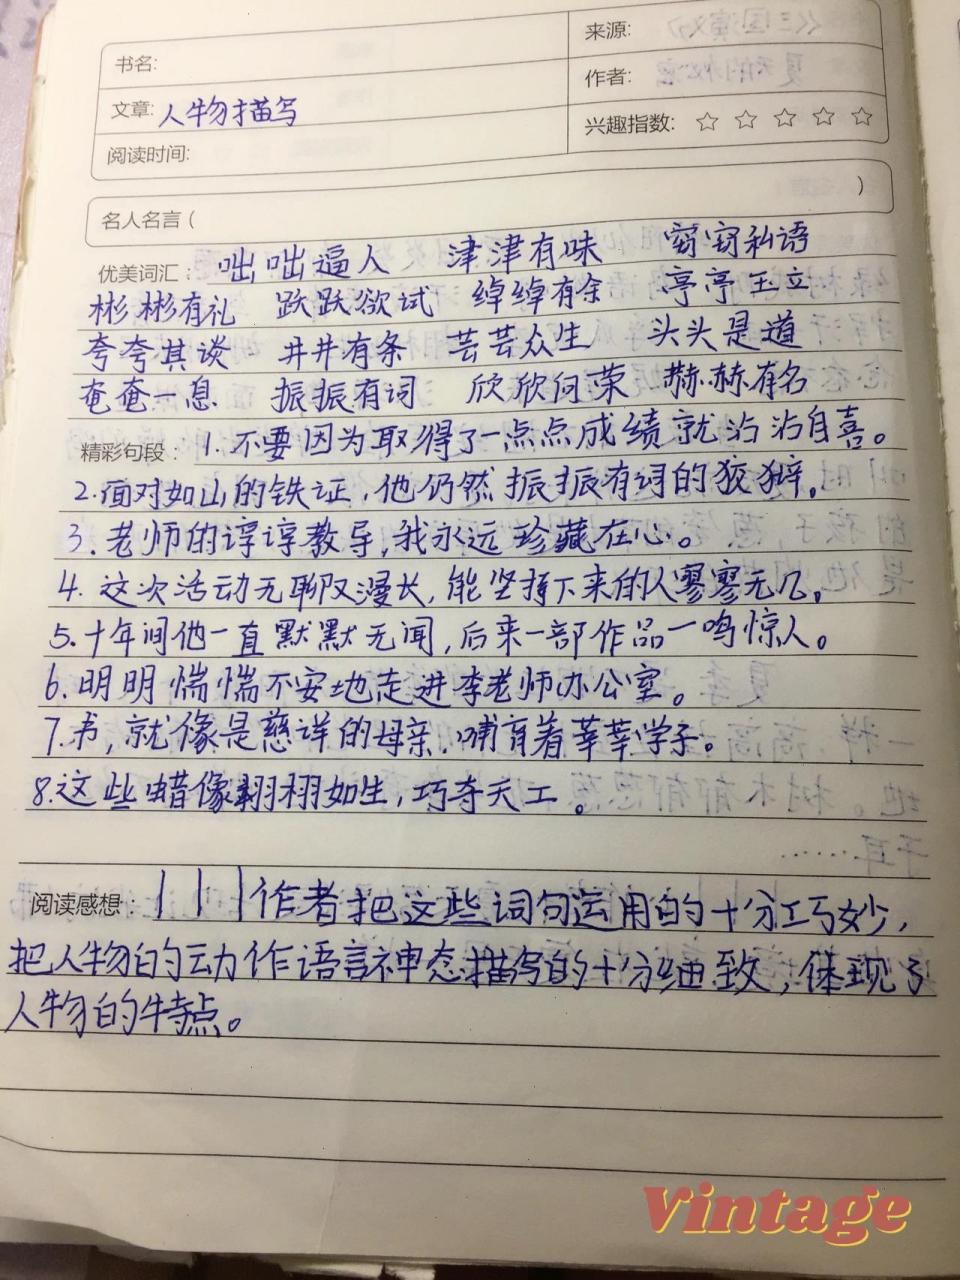 书名:
来源:
文章: 人物描写
作者:
阅读时间:
兴趣指数: ☆ ☆ ☆ ☆ ☆
名人名言 ( )
优美词汇: 咄咄逼人 津津有味 窃窃私语
彬彬有礼 跃跃欲试 绰绰有余 亭亭玉立
夸夸其谈 井井有条 芸芸众生 头头是道
奄奄一息 振振有词 欣欣向荣 赫赫有名
精彩句段: 1.不要因为取得了一点点成绩就沾沾自喜。
2.面对如山的铁证,他仍然振振有词的狡辩。
3.老师的谆谆教导,我永远珍藏在心。
4.这次活动无聊又漫长,能坚持下来的人寥寥无几。
5.十年间他一直默默无闻,后来一部作品一鸣惊人。
6.明明惴惴不安地走进李老师办公室。
7.书,就像是慈祥的母亲,哺育着莘莘学子。
8.这些蜡像翩翩栩如生,巧夺天工。
阅读感想: 作者把这些词句运用的十分巧妙,
把人物的动作语言神态描写的十分细致,体现了
人物的特点。
Vintage